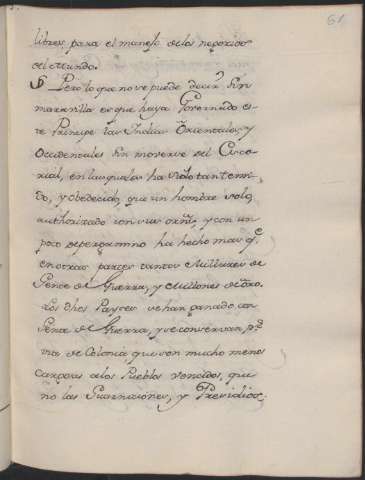 61
libres para el manejo de los negocios
del Mundo.
Pero lo que no se puede decir sin
maravilla es que haya Governado es-
te Principe las Indias Orientales, y
Occidentales sin moverse del Escu-
rial, en las quales ha sido tan temi-
do, y obedecido, que un hombre solo,
authorizado con sus ordns, y con un
poco de pergamino ha hecho mas qe
en otras partes tantos Millares de
Gente de Guerra, y Millones de oro.
Los dhos Payses se han ganado con
Gente de Guerra, y se conservan, pr
via de Colonia que son mucho menos
cargosas a los Pueblos vencidos, que
no las Guarniciones, y Presidios.